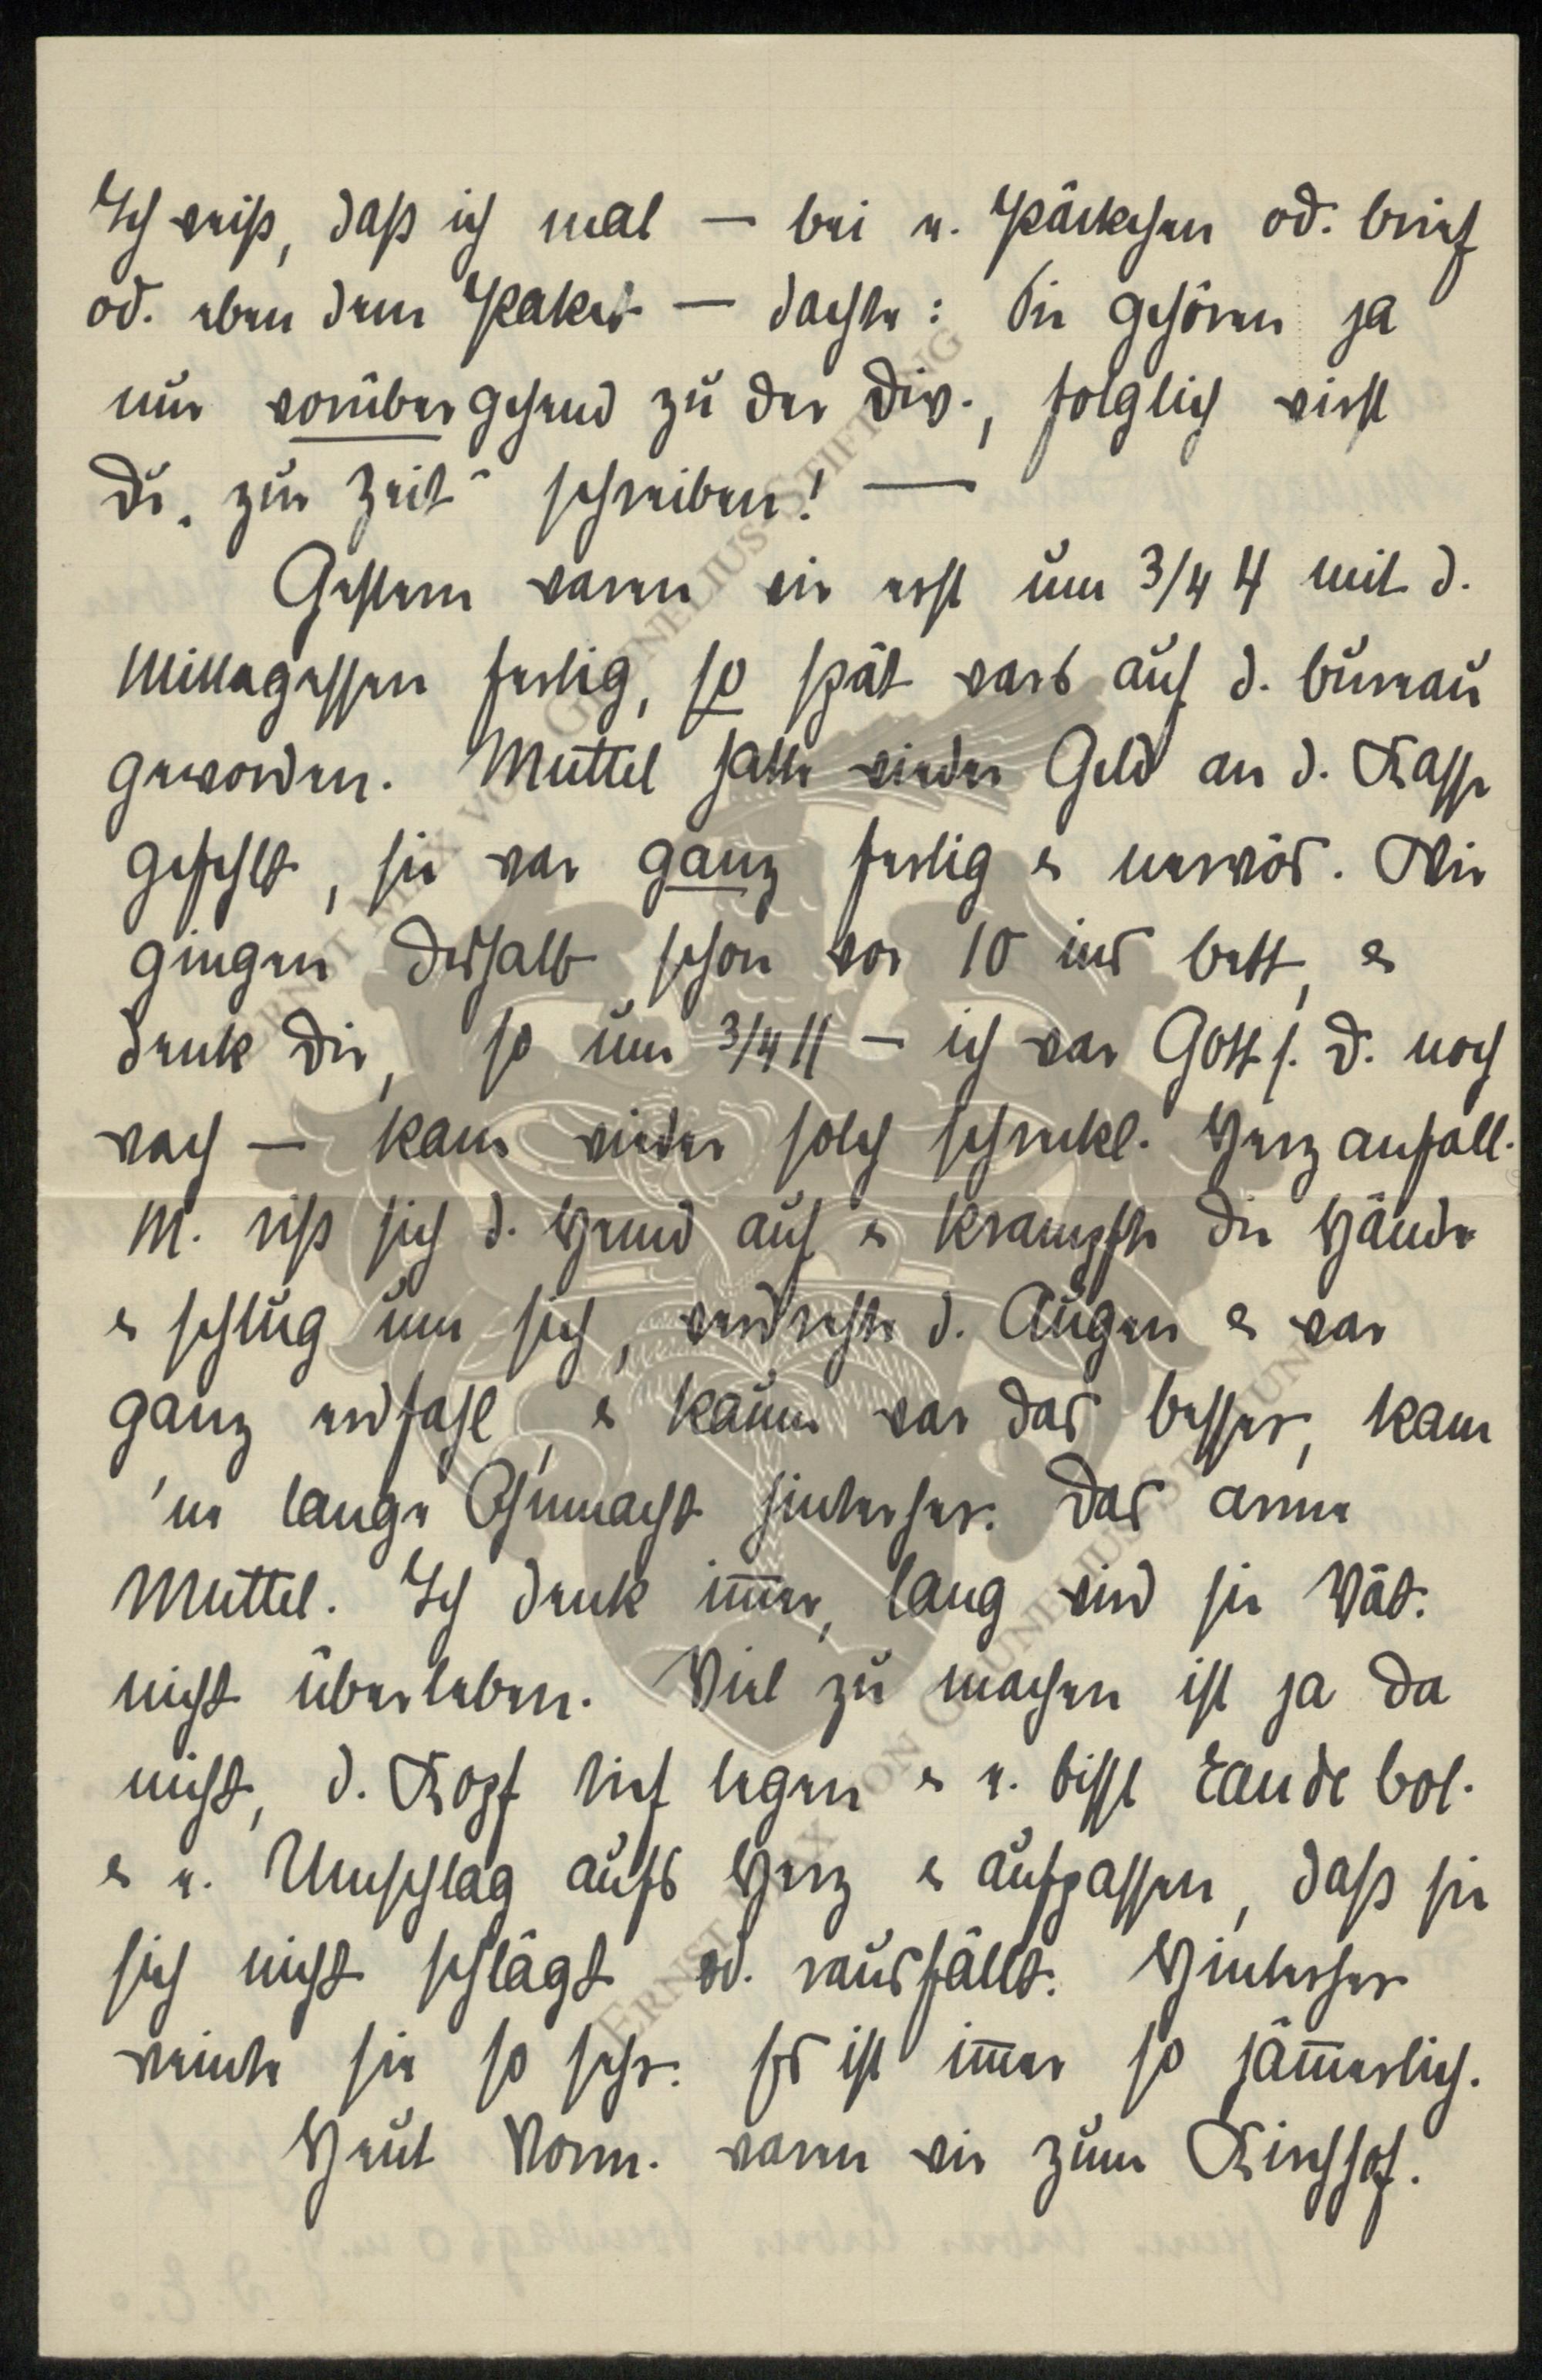 Ich weiß, daß ich mal — bei e. Päckchen od. Brief
od. eben dem Paket — dachte: Sie gehören ja
nur vorübergehend zu der Div., folglich wirst
Du „zur Zeit“ schreiben! —
Gestern waren wir erst um 3/4 4 mit d.
Mittagessen fertig, so spät wars auf d. Bureau
geworden. Muttel hatte wieder Geld an d. Kasse
gefehlt, sie war ganz fertig & nervös. Wir
gingen deshalb schon vor 10 ins Bett, &
denk Dir, so um 3/4 11 — ich war Gott s. D. noch
wach — kam wieder solch schreckl. Herzanfall.
M. riß sich d. Hemd auf & krampfte die Hände
& schlug um sich, verdrehte d. Augen & war
ganz erdfahl, & kaum war das besser, kam
'ne lange Ohnmacht hinterher. Das arme
Muttel. Ich denk immer, lang wird sie Vat.
nicht überleben. Viel zu machen ist ja da
nicht, d. Kopf tief legen & e. bissl Eau de Col.
& e. Umschlag aufs Herz & aufpassen, daß sie
sich nicht schlägt od. rausfällt. Hinterher
weinte sie so sehr. Es ist immer so jämmerlich.
Heut Vorm. waren wir zum Kirchhof.
ERNST MAX VON GRUNELIUS-STIFTUNG
ERNST MAX VON GRUNELIUS-STIFTUNG